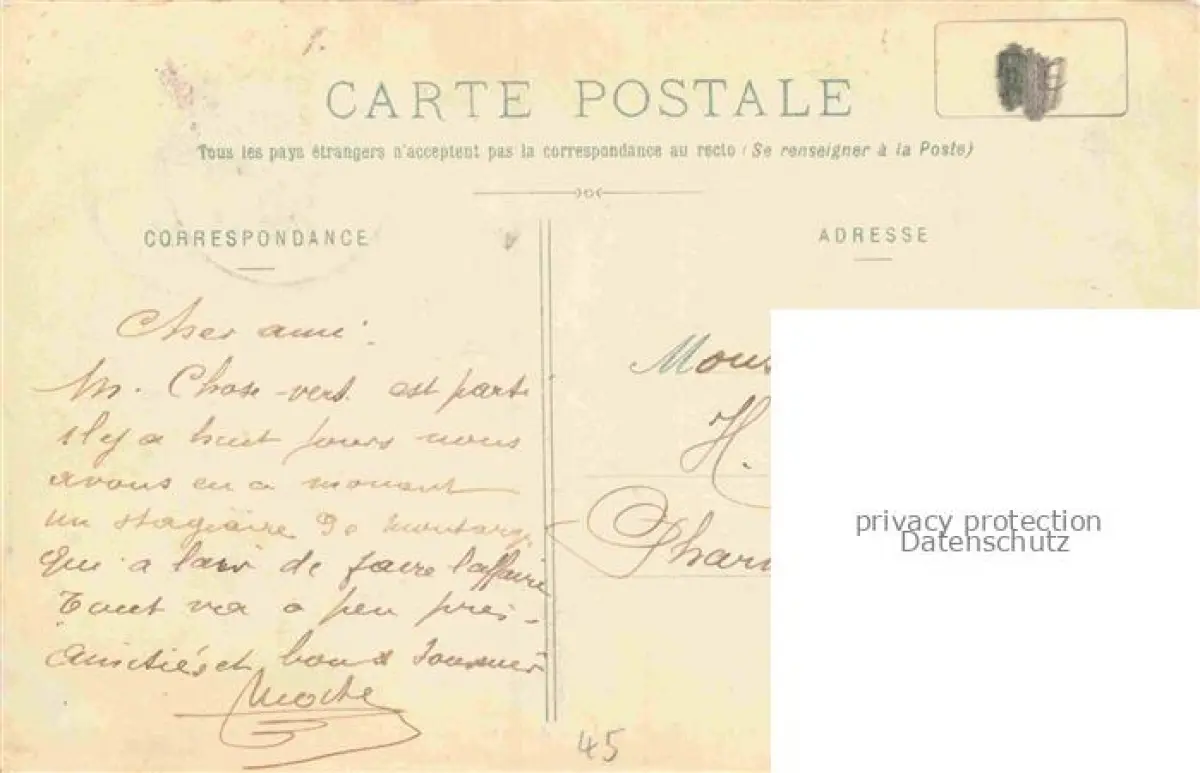 CARTE POSTALE
Tous les pays étrangers n'acceptent pas la correspondance au recto (Se renseigner à la Poste)
CORRESPONDANCE
ADRESSE
Cher ami:
M. Chose-vert est parti
il y a huit jours nous
avons en ce moment
un stagiaire
qui a l'air de faire l'affaire
Tout va à peu près.
Amitiés et bons souvenirs
Mous
H.
Phar
45
privacy protection
Datenschutz